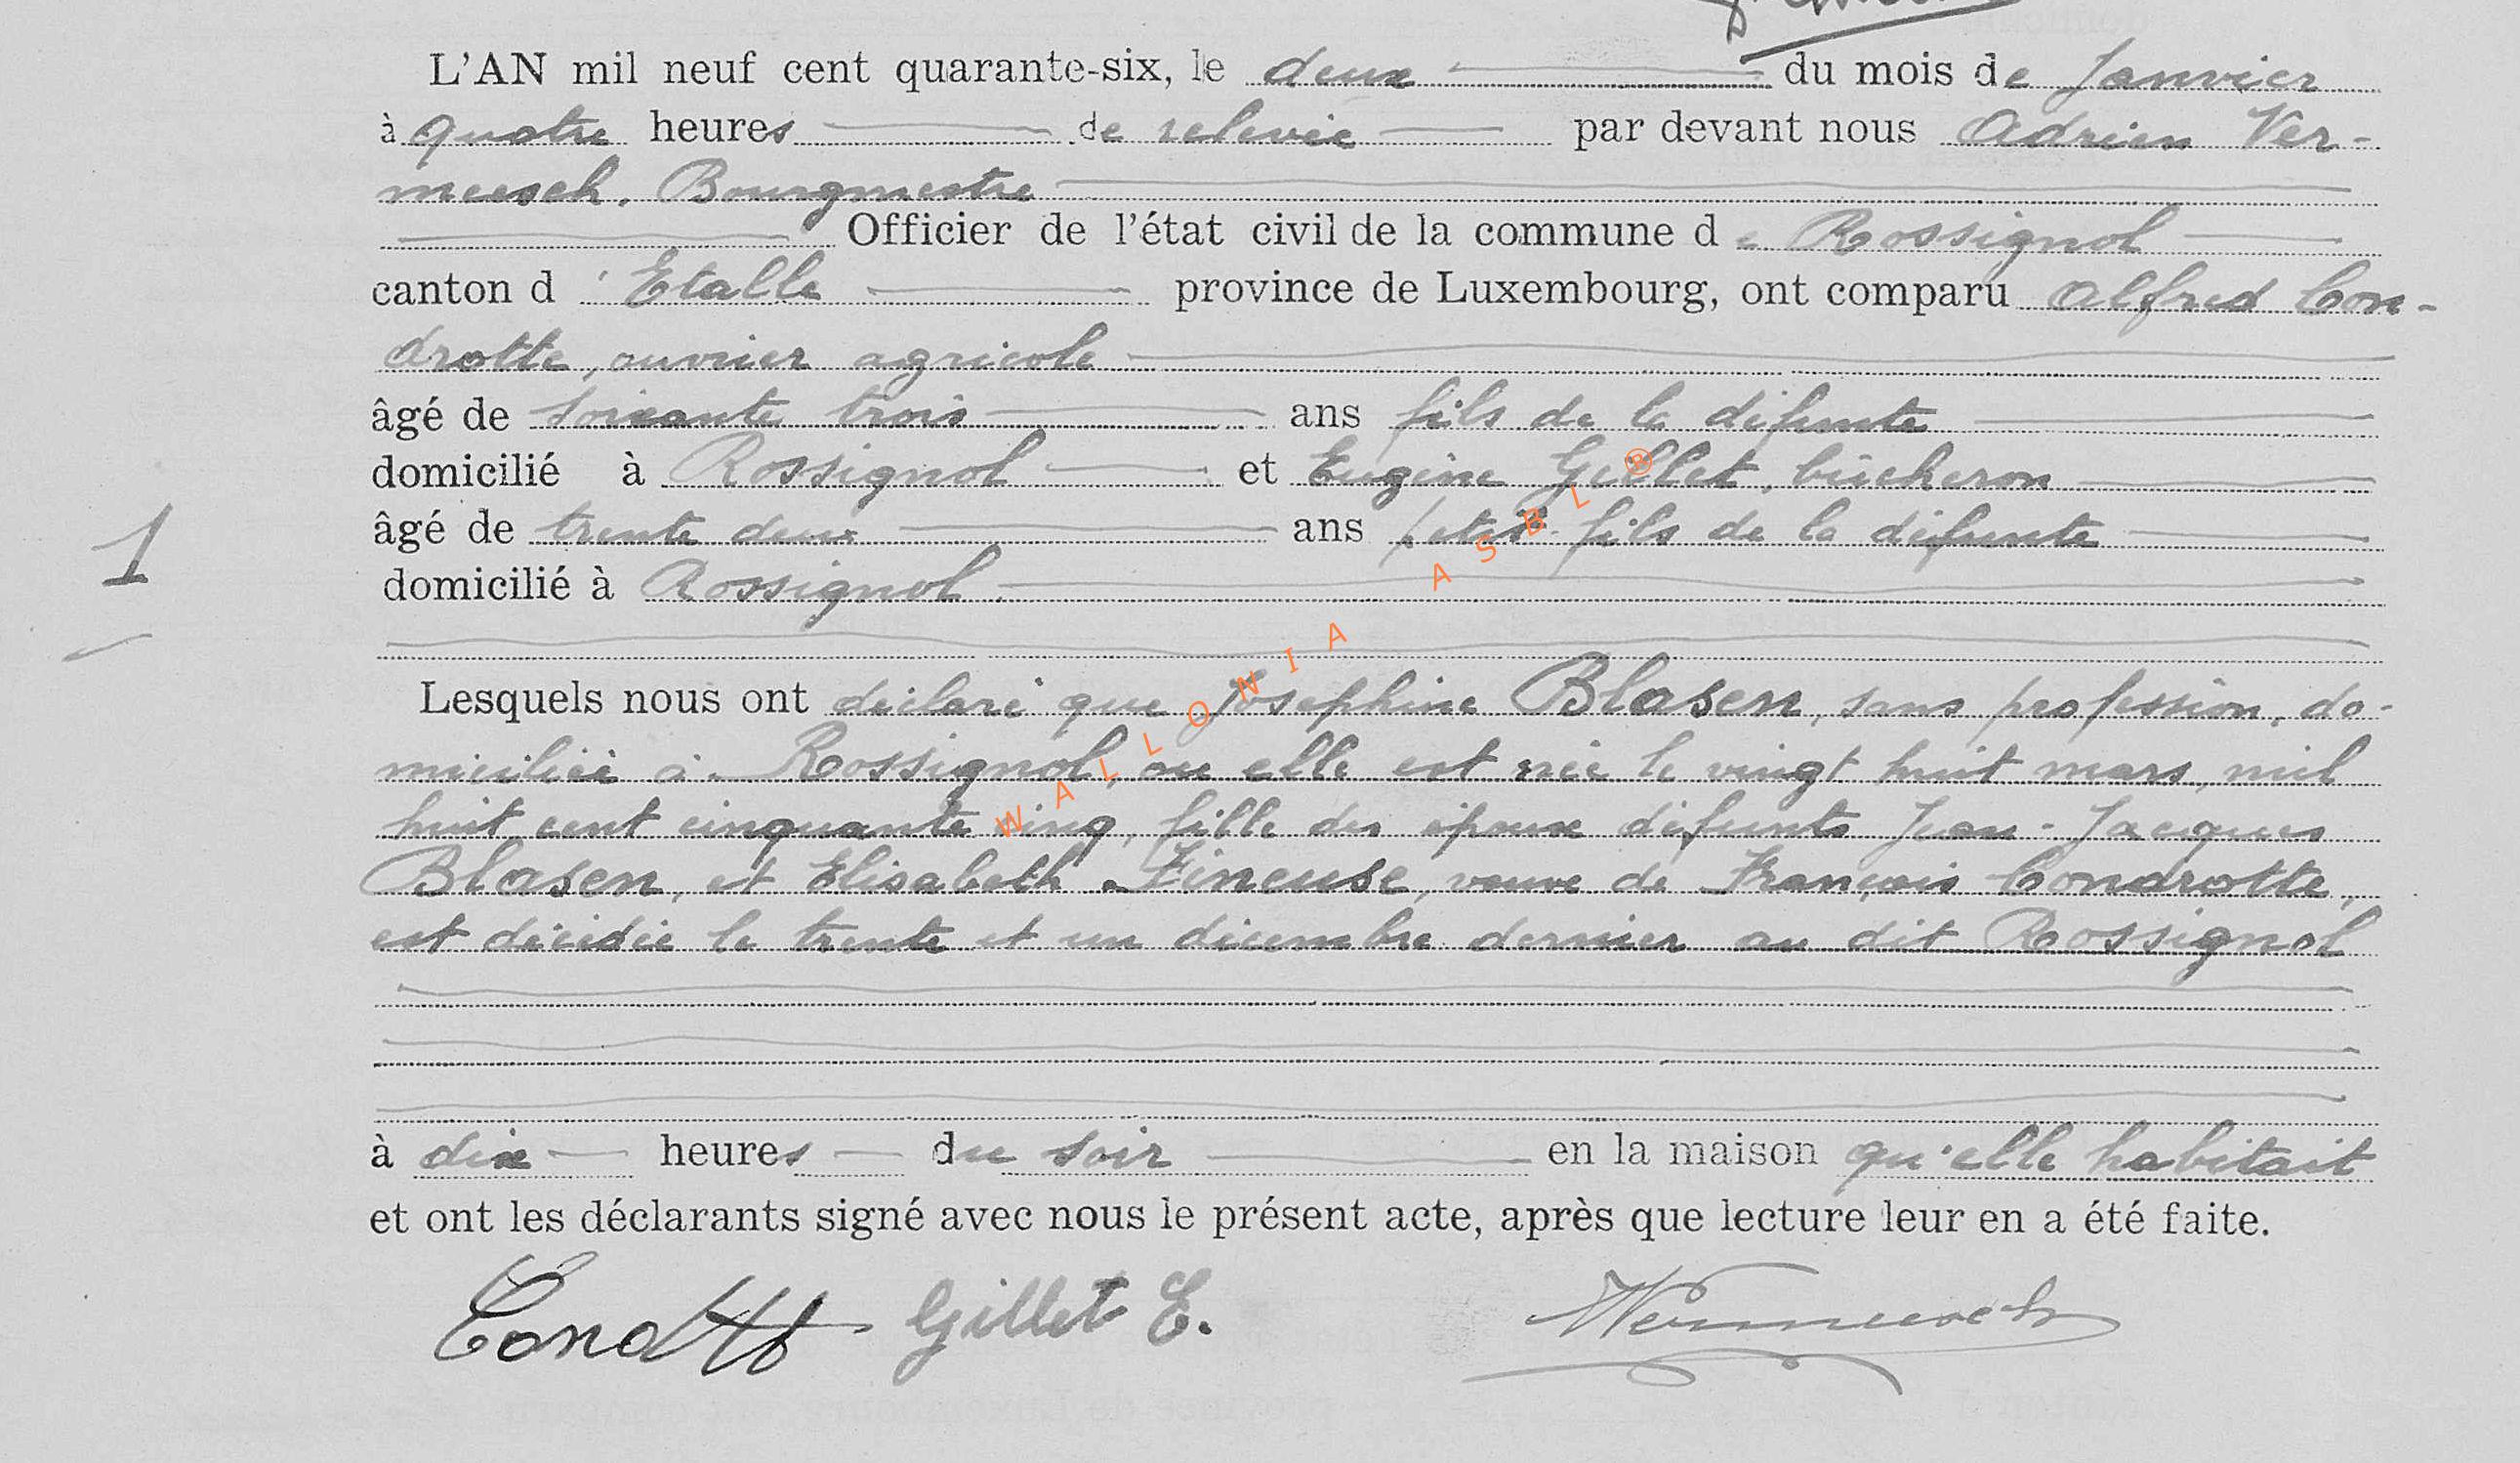 L'AN mil neuf cent quarante-six, le deux du mois de Janvier
à quatre heures de relevée par devant nous Adrien Ver-
meesch, Bourgmestre
Officier de l'état civil de la commune de Rossignol
canton d'Etalle province de Luxembourg, ont comparu Alfred Con-
drotte, ouvrier agricole
âgé de soixante trois ans fils de la défunte
domicilié à Rossignol et Eugène Gillet, bûcheron
âgé de trente deux ans petit-fils de la défunte
domicilié à Rossignol.
1
Lesquels nous ont déclaré que Joséphine Blasen, sans profession, do-
miciliée à Rossignol, où elle est née le vingt huit mars, mil
huit cent cinquante cinq, fille des époux défunts Jean-Jacques
Blasen, et Elisabeth Fineuse, veuve de François Condrotte,
est décédée le trente et un décembre dernier au dit Rossignol
à dix heures du soir en la maison qu'elle habitait
et ont les déclarants signé avec nous le présent acte, après que lecture leur en a été faite.
Gillet E. Vermeesch
WALLONIA ASBL ®